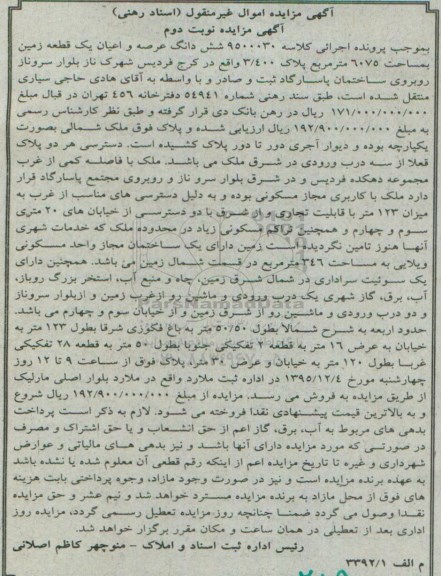 آگهی مزایده اموال غیرمنقول (اسناد رهنی)
آگهی مزایده نوبت دوم
بموجب پرونده اجرائی کلاسه ۹۵۰۰۰۳۰ شش دانگ عرصه و اعیان یک قطعه زمین
بمساحت ۶۰۷۵ مترمربع پلاک ۳/۴۰۰ واقع در کرج فردیس شهرک ناز بلوار سروناز
روبروی ساختمان پاسارگاد ثبت و صادر و با واسطه به آقای هادی حاجی سیاری
منتقل شده است، طبق سند رهنی شماره ۵۴۹۴۱ دفترخانه ۴۵۶ تهران در قبال مبلغ
۱۷۱/۰۰۰/۰۰۰/۰۰۰ ریال در رهن بانک دی قرار گرفته و طبق نظر کارشناس رسمی
به مبلغ ۱۹۲/۹۰۰/۰۰۰/۰۰۰ ریال ارزیابی شده و پلاک فوق ملک شمالی بصورت
یکپارچه بوده و دیوار آجری دور تا دور پلاک کشیده است. دسترسی هر دو پلاک
فعلا از سه درب ورودی در شرق ملک می باشد. ملک با فاصله کمی از غرب
مجموعه دهکده فردیس و در شرق بلوار سرو ناز و روبروی مجتمع پاسارگاد قرار
دارد ملک با کاربری مجاز مسکونی بوده و به دلیل دسترسی های مناسب از غرب به
میزان ۱۲۳ متر با قابلیت تجاری و از شرق با دو دسترسی از خیابان های ۲۰ متری
سوم و چهارم و همچنین تراکم مسکونی زیاد در محدوده ملک که خدمات شهری
آنها هنوز تامین نگردیده است زمین دارای یک ساختمان مجاز واحد مسکونی
ویلایی به مساحت ۲۴۶ مترمربع در قسمت شمال زمین می باشد. همچنین دارای
یک سوئیت سرایداری در شمال شرق زمین، چاه و منبع آب، استخر بزرگ روباز،
آب، برق، گاز شهری یک درب ورودی و ماشین رو ازغرب زمین و ازبلوار سروناز
و دو درب ورودی و ماشین رو از شرق زمین و از خیابان سوم و چهارم می باشد.
حدود اربعه به شرح شمالا بطول ۵۰/۵۰ متر به باغ فکوری شرقا بطول ۱۲۳ متر به
خیابان به عرض ۱۶ متر به قطعه ۲ تفکیکی جنوبا بطول ۵۰ متر به قطعه ۲۸ تفکیکی
غربا بطول ۱۲۰ متر به خیابان و عرض ۳۰ متر، پلاک فوق از ساعت ۹ تا ۱۲ روز
چهارشنبه مورخ ۱۳۹۵/۱۲/۴ در اداره ثبت ملارد واقع در ملارد بلوار اصلی مارلیک
از طریق مزایده به فروش می رسد. مزایده از مبلغ ۱۹۲/۹۰۰/۰۰۰/۰۰۰ ریال شروع
و به بالاترین قیمت پیشنهادی نقدا فروخته می شود. لازم به ذکر است پرداخت
بدهی های مربوط به آب، برق، گاز اعم از حق انشعاب و یا حق اشتراک و مصرف
در صورتی که مورد مزایده دارای آنها باشد و نیز بدهی های مالیاتی و عوارض
شهرداری و غیره تا تاریخ مزایده اعم از اینکه رقم قطعی آن معلوم شده یا نشده باشد
به عهده برنده مزایده است و نیز در صورت وجود مازاد، وجوه پرداختی بابت هزینه
های فوق از محل مازاد به برنده مزایده مسترد خواهد شد و نیم عشر و حق مزایده
نقدا وصول می گردد ضمنا چنانچه روز مزایده تعطیل رسمی گردد، مزایده روز
اداری بعد از تعطیلی در همان ساعت و مکان مقرر برگزار خواهد شد.
رئیس اداره ثبت اسناد و املاک - منوچهر کاظم اصلانی
م الف ۳۳۹۲/۱